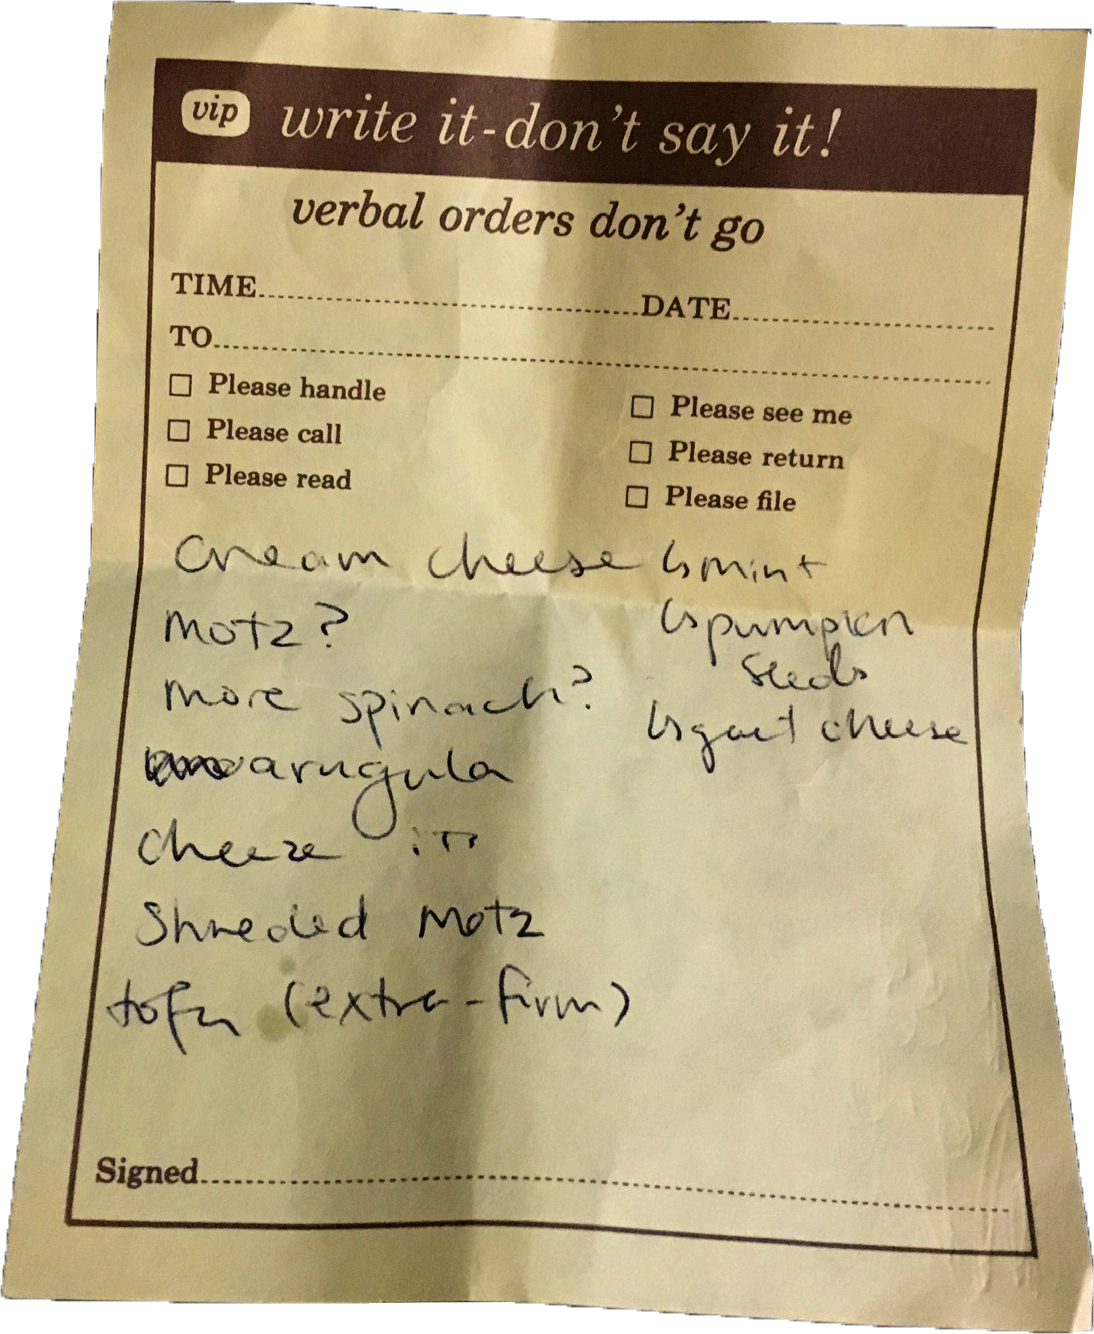 vip write it-don't say it!
verbal orders don't go
TIME DATE
TO
Please handle
Please call
Please read
Please see me
Please return
Please file
cream cheese
motz?
more spinach?
arugula
cheeze its
Shreded motz
tofu (extra-firm)
↳ mint
↳ pumpkin
seeds
↳ goat cheese
Signed